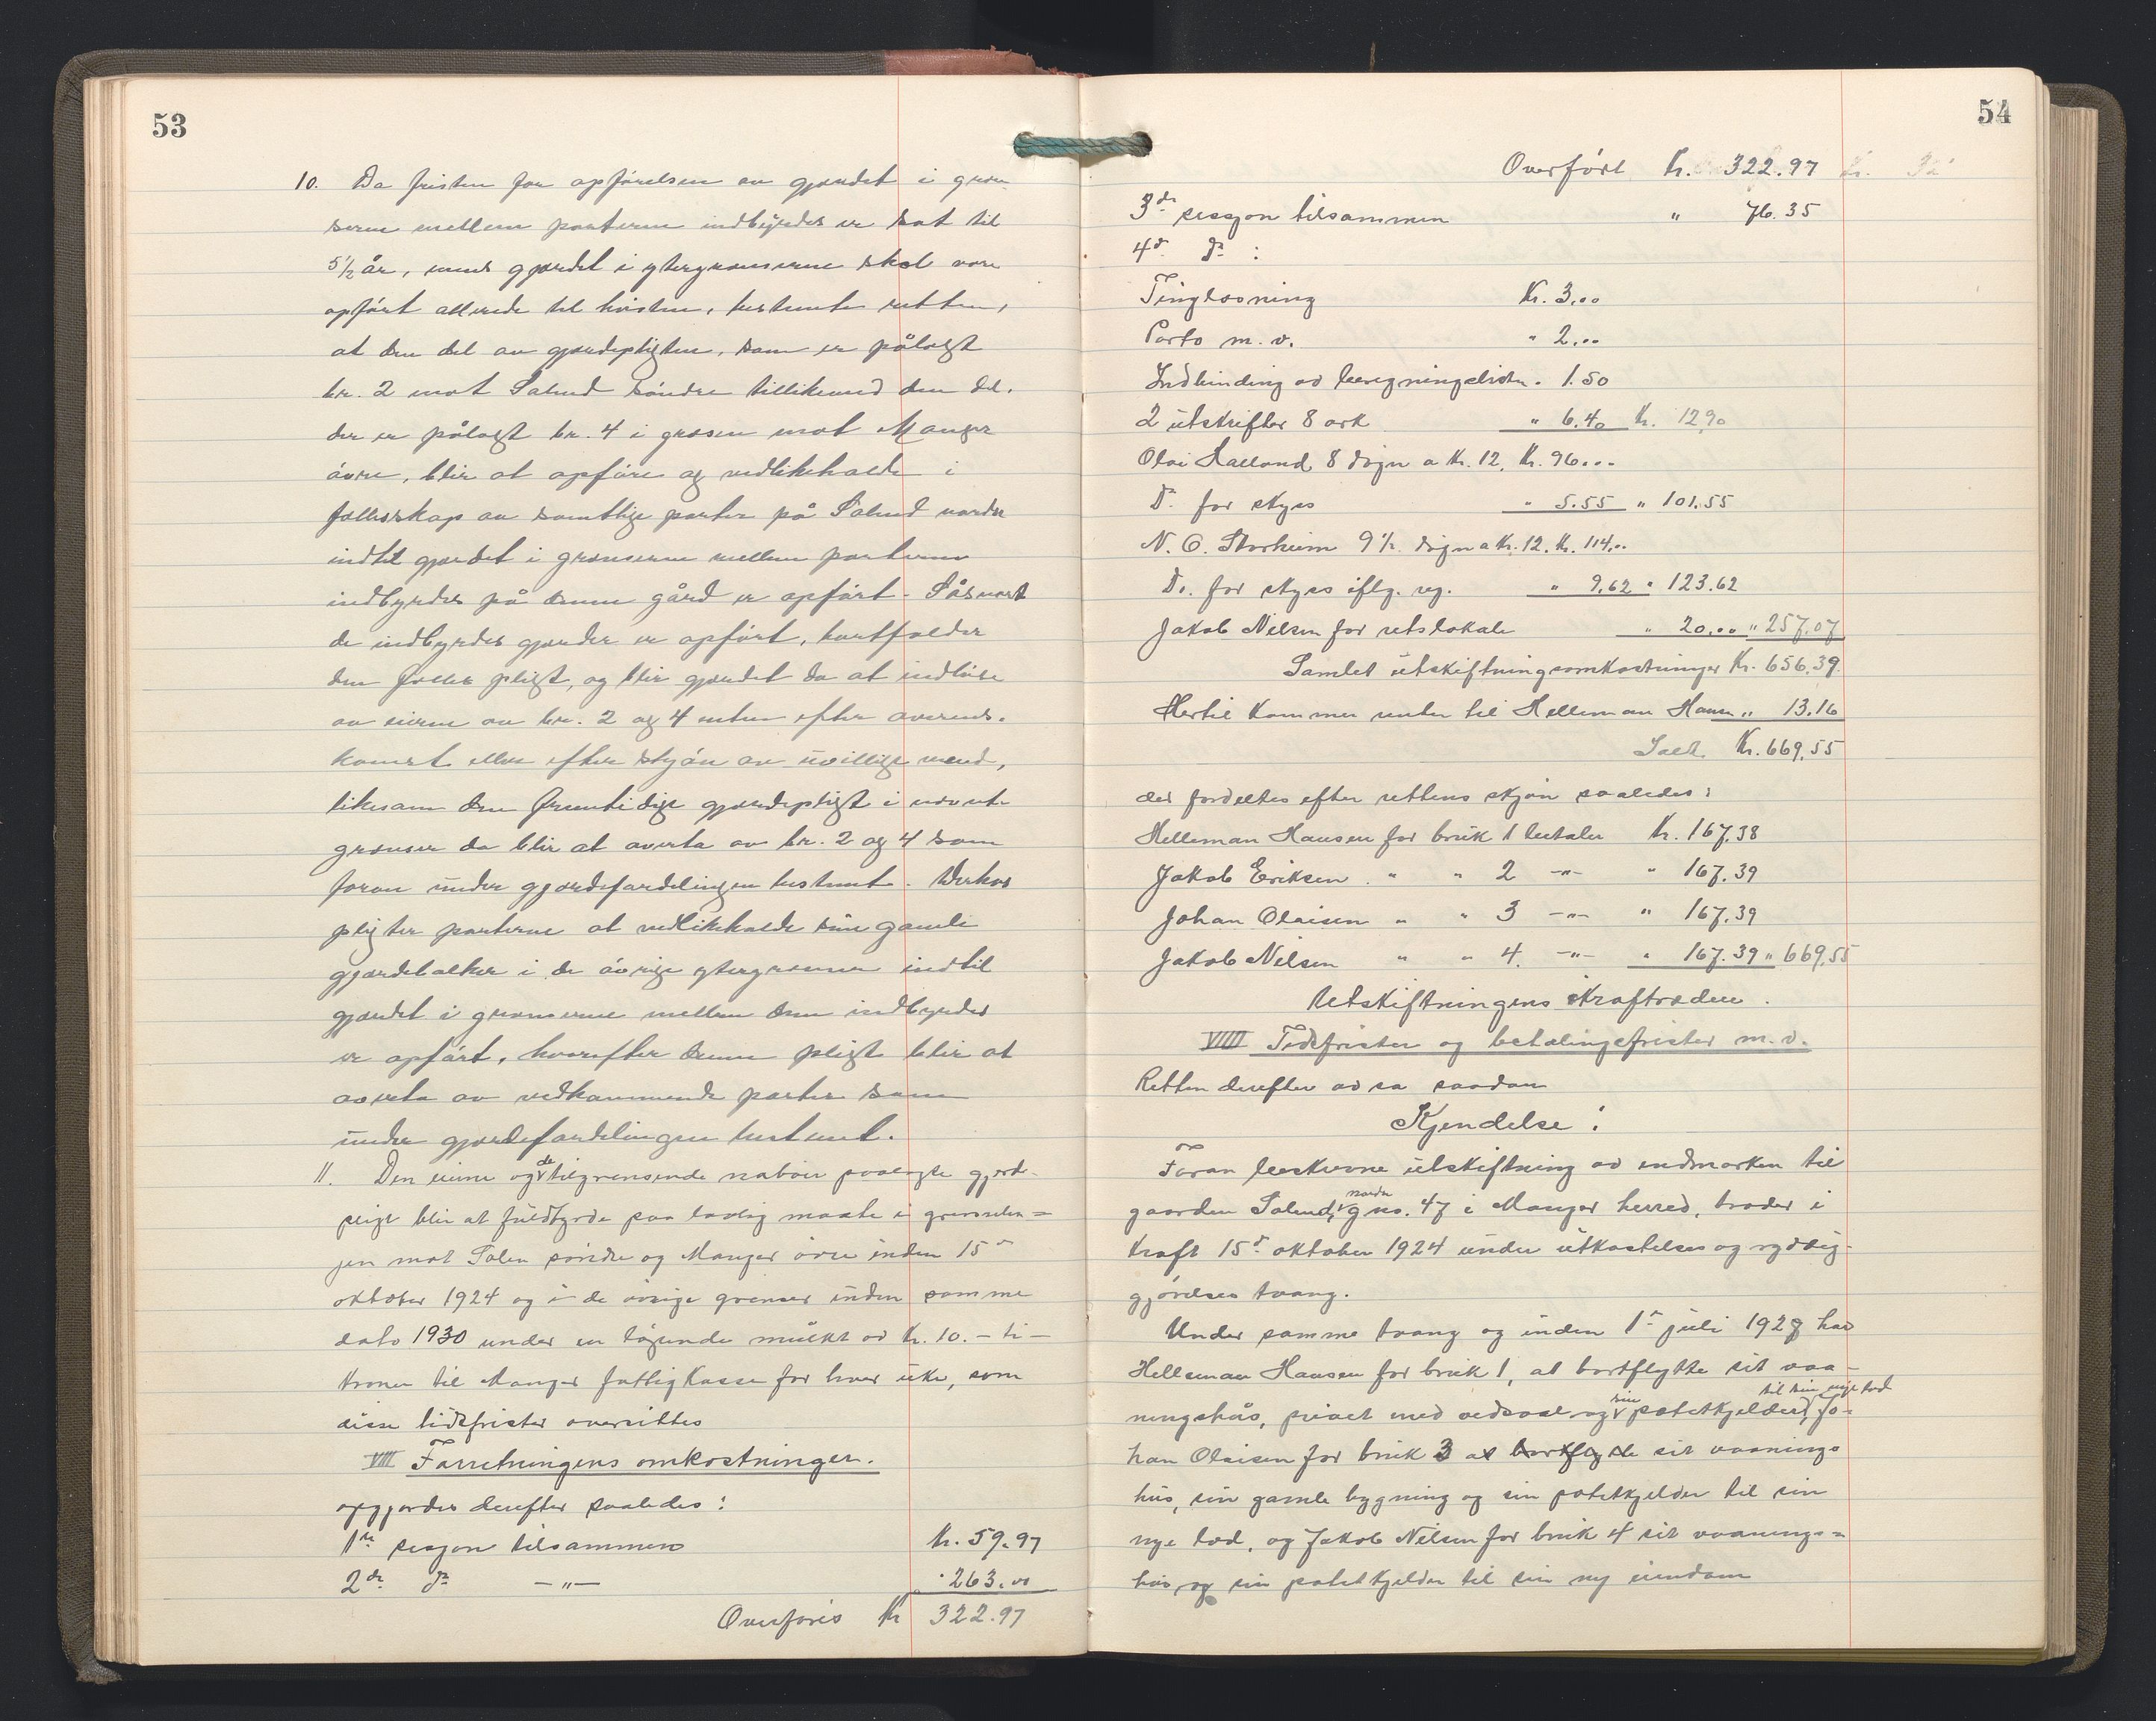 53
10. Da fristen for opförelsen av gjærdet i græn
serne mellem parterne indbyrdes er sat til
5½ år, mens gjærdet i ytergrænserne skal være
opfört allerede til hösten, bestemte retten,
at den del av gjærdepligten, som er pålagt
br. 2 mot Salend söndre tillikemed den del,
der er pålagt br. 4 i græsen mot Manger
övre, blir at opföre og vedlikeholde i
fællesskap av samtlige parter på Salend nordre
indtil gjærdet i grænserne mellem parterne
indbyrdes på denne gård er opfört. Såsnart
de indbyrdes gjærder er opfört, bortfalder
den fælles pligt, og blir gjærdet da at indlöse
av eierne av br. 2 og 4 enten efter overens-
komst eller efter skjön av uvillige mænd,
likesom den fremtidige gjærdepligt i nævnte
grænser da blir at overta av br. 2 og 4 som
foran under gjærdefordelingen bestemt. Derhos
pligter parterne at vedlikeholde sine gamle
gjærdebolker i de övrige ytergrænser indtil
gjærdet i grænserne mellem dem indbyrdes
er opfört, hvorefter denne pligt blir at
overta av vedkommende parter som
under gjærdefordelingen bestemt.
11. Den eierne og de tilgrænsende naboer paalagte gjerd-
pligt blir at fuldbyrde paa lovlig maate i grænselin=
jen mot Salen söndre og Manger övre inden 15de
oktober 1924 og i de övrige grenser inden samme
dato 1930 under en löpende mulkt av kr. 10.– ti –
kroner til Manger fattigkasse for hver uke, som
disse tidsfrister oversittes
VIII Forretningens omkostninger.
opgjordes derefter saaledes:
1ste sesjon tilsammen Kr. 59.97
2den do –"– " 263.00
Overföres Kr 322.97
54
Overfört Kr. 322.97
3die sesjon tilsammen " 76.35
4de do :
Tinglæsning Kr. 3.00
Porto m. v. " 2.00
Indbinding av beregningslisten " 1.50
2 utskrifter 8 ark " 6.40 Kr. 12.90
Olai Hailand 8 dögn a Kr. 12, Kr. 96.00
Do. for skyss " 5.55 " 101.55
N. O. Storheim 9½ dögn a Kr. 12. Kr. 114.00
Do. for skyss iflg. rg. " 9.62 " 123.62
Jakob Nilsen for retslokale " 20.00 " 257.07
Samlet utskiftningsomkostninger Kr. 656.39.
Hertil kommer renter til Helleman Hansen " 13.16
Ialt Kr. 669.55
der fordeltes efter rettens skjön saaledes:
Helleman Hansen for bruk 1 betaler Kr. 167.38
Jakob Eriksen " " 2 –"– " 167.39
Johan Olaisen " " 3 –"– " 167.39
Jakob Nilsen " " 4. –"– " 167.39 " 669.55
Utskiftningens ikrafttræden.
VIIII Tidsfrister og betalingsfrister m. v.
Retten derefter avsa saadan
Kjendelse:
Foran beskrevne utskiftning av indmarken til
gaarden Salend, nordre gno. 47 i Manger herred, træder i
kraft 15de oktober 1924 under utkastelses og ryddig-
gjörelses tvang.
Under samme tvang og inden 1ste juli 1928 har
Helleman Hansen for bruk 1, at bortflytte sit vaa-
ningshus, privet med vedskaal og sin potetkjelder til sin nye tod, Jo-
han Olaisen for bruk 3 at bortflytte sit vaanings
hus, sin gamle bygning og sin potetkjelder til sin
nye tod, og Jakob Nilsen for bruk 4 sit vaanings=
hus og sin potetkjelder til sin ny eiendom